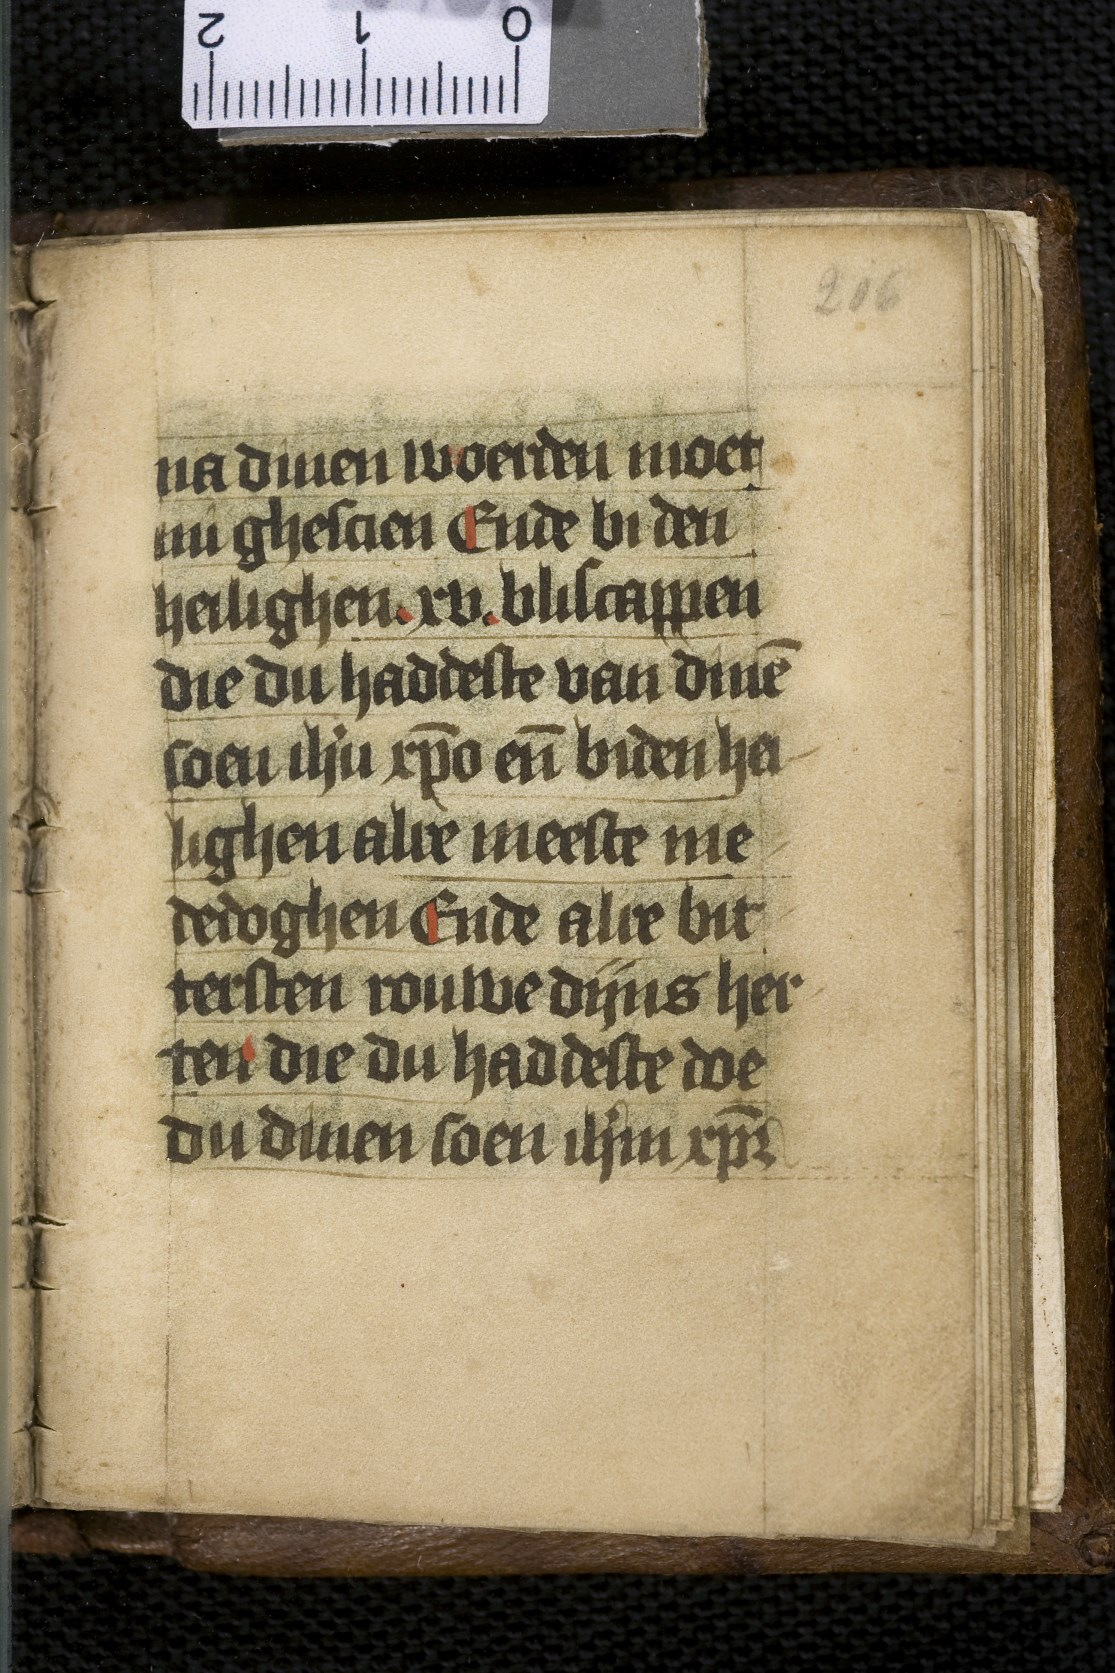 2 1 0
206
na dinen woerden moet
mi ghescien Ende bi den
heilighen. xv. bliscappen
die du haddeste van dinē
soen ihū xp̄o en̄ biden hei
lighen alre meeste me
dedoghen Ende alre bit
tersten rouwe dijns her
ten die du haddeste doe
du dinen soen ihm xp̄m